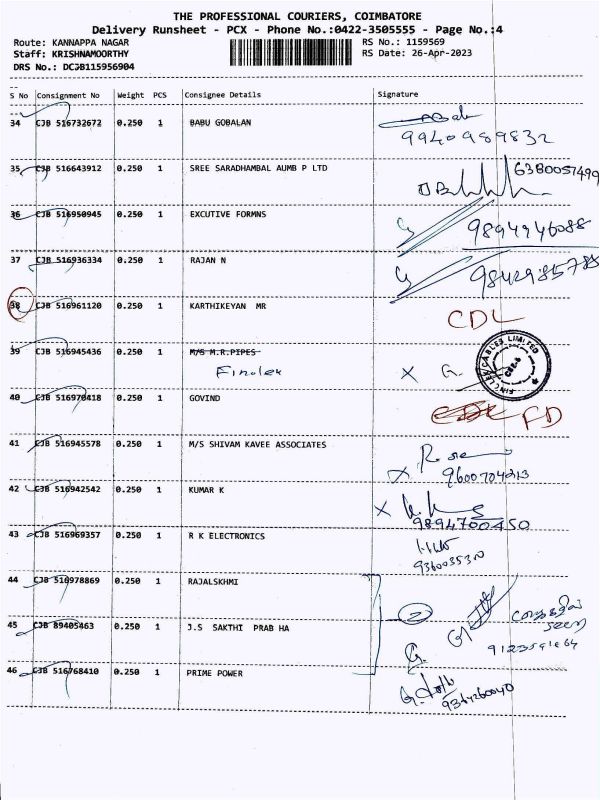 THE PROFESSIONAL COURIERS, COIMBATORE
Delivery Runsheet - PCX - Phone No.:0422-3505555 - Page No.:4
Route: KANNAPPA NAGAR RS No.: 1159569
Staff: KRISHNAMOORTHY RS Date: 26-Apr-2023
DRS No.: DCJB115956904
S No Consignment No Weight PCS Consignee Details Signature
34 CJB 516732672 0.250 1 BABU GOBALAN
9940989832
35 CJB 516643912 0.250 1 SREE SARADHAMBAL AUMB P LTD 6380057499
36 CJB 516950945 0.250 1 EXCUTIVE FORMNS 9894946088
37 CJB 516936334 0.250 1 RAJAN N 9842985788
38 CJB 516961120 0.250 1 KARTHIKEYAN MR CDL
39 CJB 516945436 0.250 1 M/S M.R.PIPES
Finolex X G.
FINOLEX CABLES LIMITED
CBE-6
40 CJB 516970418 0.250 1 GOVIND CDL FD
41 CJB 516945578 0.250 1 M/S SHIVAM KAVEE ASSOCIATES
X 9600704213
42 CJB 516942542 0.250 1 KUMAR K X
9894700450
43 CJB 516969357 0.250 1 R K ELECTRONICS
9360035310
44 CJB 516978869 0.250 1 RAJALSKHMI
2
45 CJB 89405463 0.250 1 J.S SAKTHI PRAB HA
G. 9123591664
46 CJB 516768410 0.250 1 PRIME POWER
9364260040